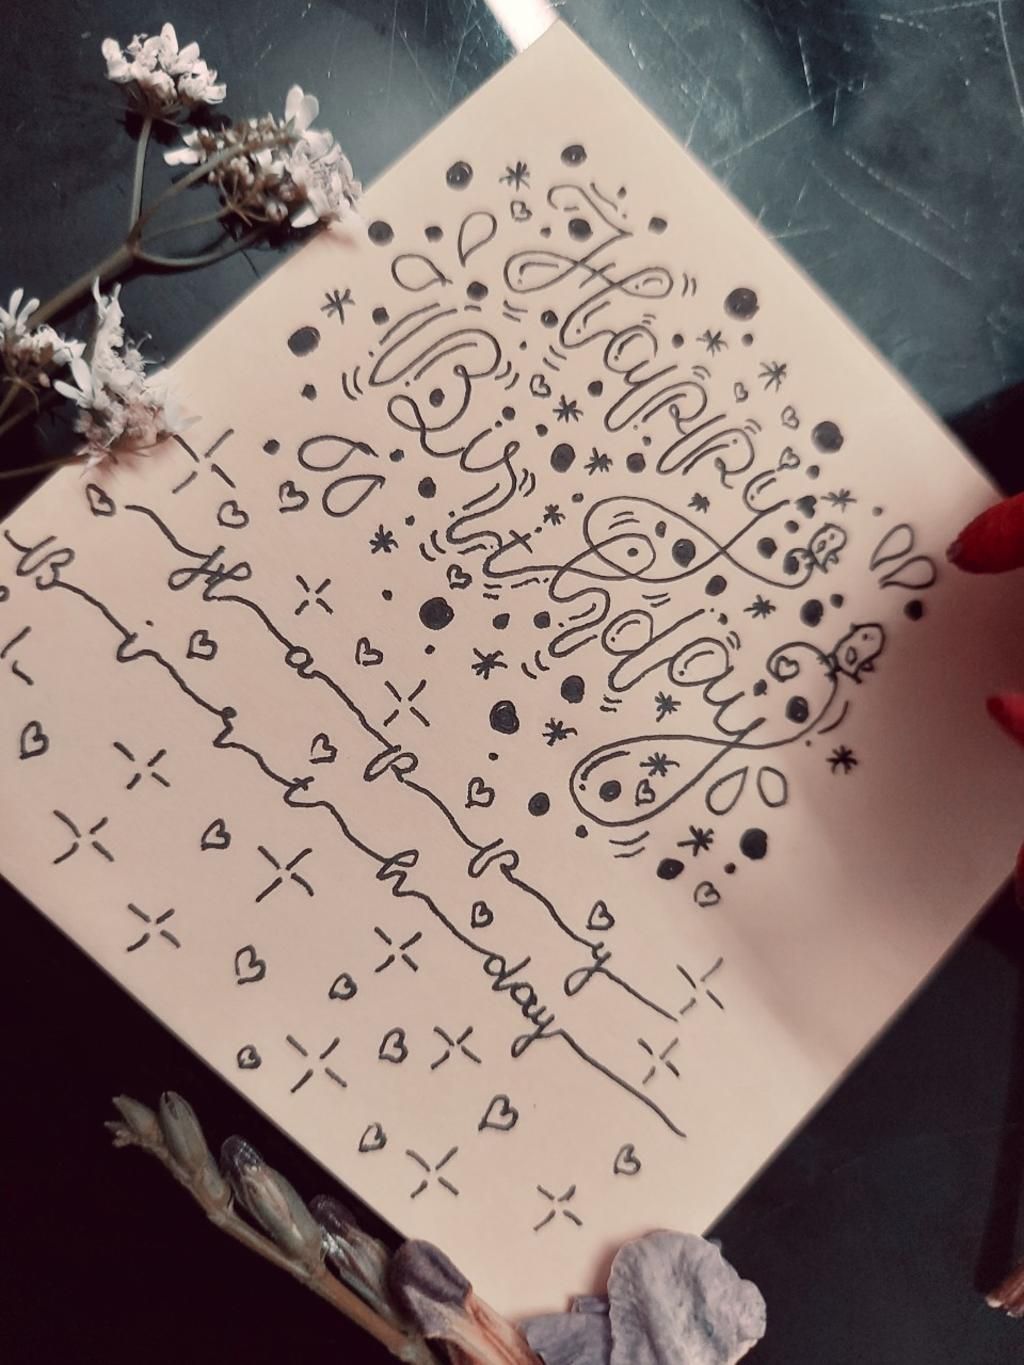 Happy
Birthday
Happy
Birthday